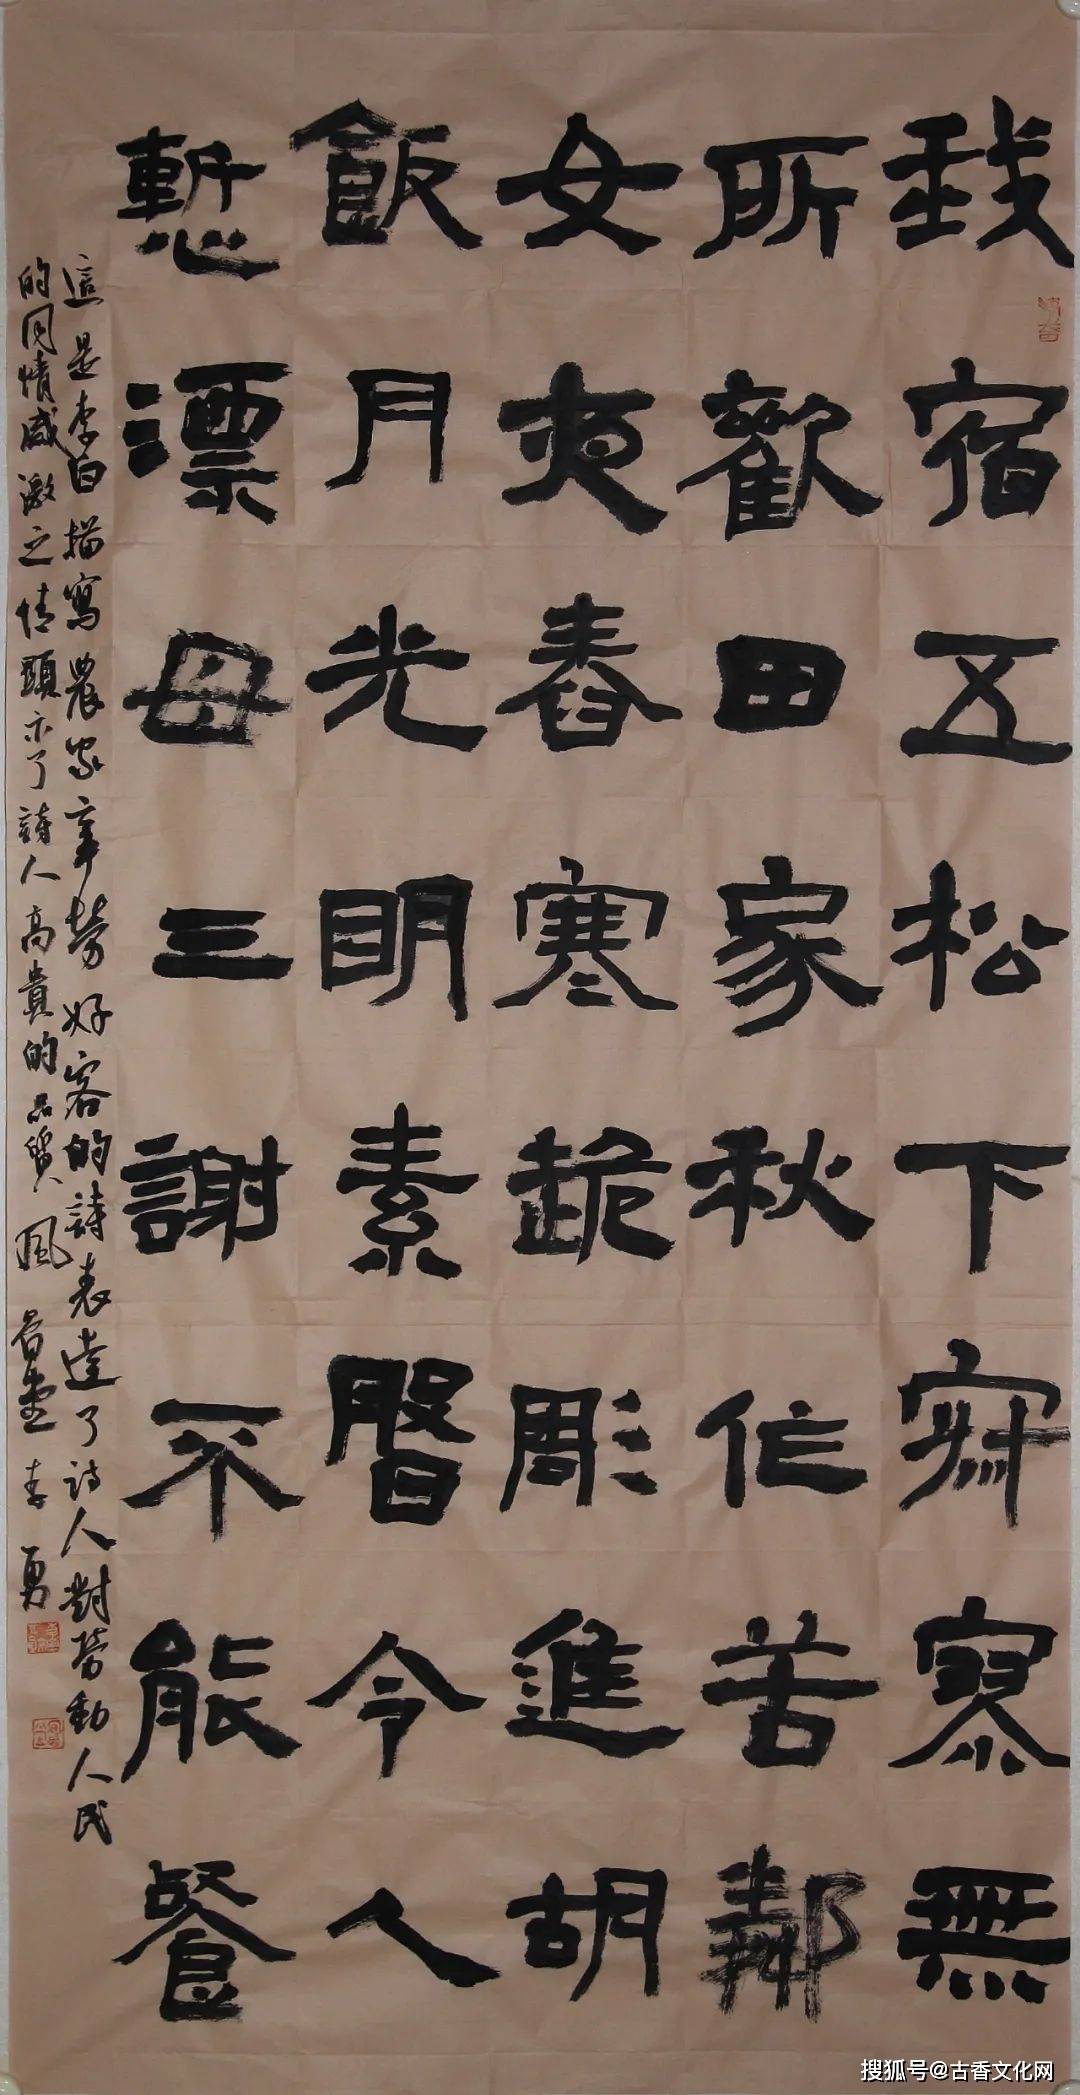 我宿五松下寂寥無
所歡田家秋作苦鄰
女夜舂寒跪彫進胡
飯月光明素盤令人
慙漂母三謝不能餐
這是李白描寫農家辛勞好客的詩表達了詩人對勞動人民
的同情感激之情顯示了詩人高貴的品質風 李勇
搜狐号@古香文化网